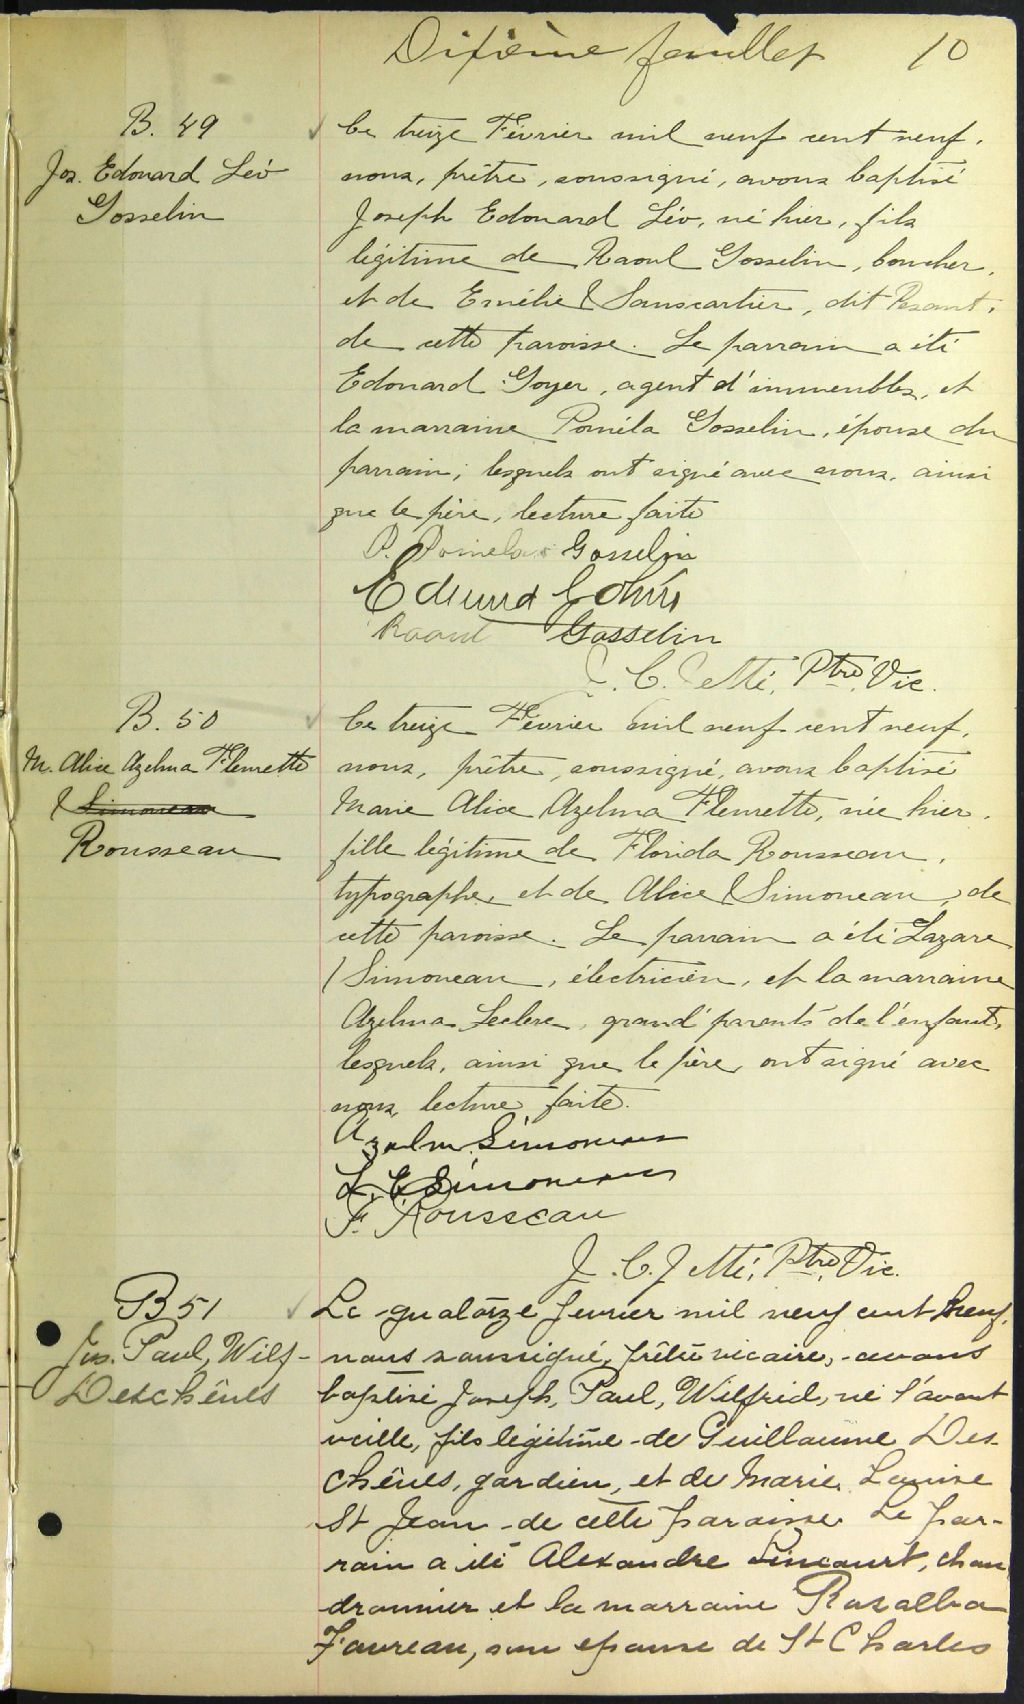 Dixième feuillet 10
B. 49
Jos. Edouard Léo
Gosselin
Le treize Février mil neuf cent neuf,
nous, prêtre, soussigné, avons baptisé
Joseph Edouard Léo, né hier, fils
légitime de Raoul Gosselin, boucher,
et de Emélie Sanscartier, dit Pesant,
de cette paroisse. Le parrain a été
Edouard Goyer, agent d'immeubles, et
la marraine Poméla Gosselin, épouse du
parrain; lesquels ont signé avec nous, ainsi
que le père, lecture faite
P. Pomela Gosselin
Raoul Gosselin
J. C. Jetté, Ptre, Vic.
B. 50
M. Alice Azelma Fleurette
Simoneau
Rousseau
Le treize Février mil neuf cent neuf,
nous, prêtre, soussigné, avons baptisé
Marie Alice Azelma Fleurette, née hier,
fille légitime de Florida Rousseau,
typographe, et de Alice Simoneau, de
cette paroisse. Le parrain a été Lazare
Simoneau, électricien, et la marraine
Azelma Leclerc, grand' parents de l'enfant,
lesquels, ainsi que le père, ont signé avec
nous, lecture faite.
Azelma Simoneau
L. E. Simoneau
F. Rousseau
J. C. Jetté, Ptre, Vic.
B 51
Jos. Paul, Wilf-
Deschênes
Le quatorze fevrier mil neuf cent neuf,
nous soussigné, prêtre vicaire, avons
baptisé Joseph, Paul, Wilfrid, né l'avant
veille, fils légitime de Guillaume Des-
chênes, gardien, et de Marie Louise
St Jean de cette paroisse. Le par-
rain a été Alexandre Lincourt, chau
dronnier et la marraine Rosalba
Favreau, son épouse de St Charles